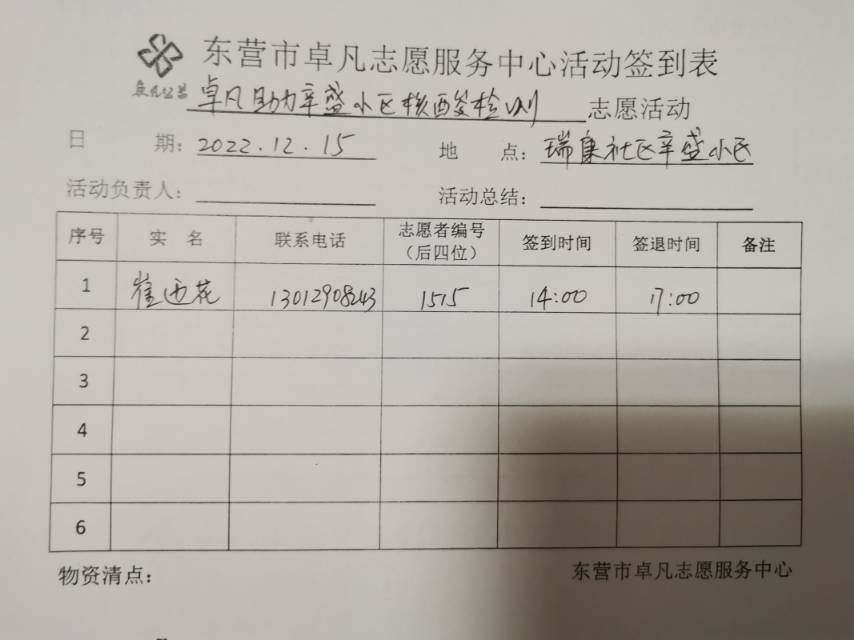 东营市卓凡志愿服务中心活动签到表
卓凡公益
卓凡助力辛盛小区核酸检测志愿活动
日 期：2022.12.15 地 点：瑞康社区辛盛小区
活动负责人： 活动总结：
序号 实 名 联系电话 志愿者编号（后四位） 签到时间 签退时间 备注
1 崔西花 13012908243 1515 14:00 17:00
2
3
4
5
6
物资清点： 东营市卓凡志愿服务中心